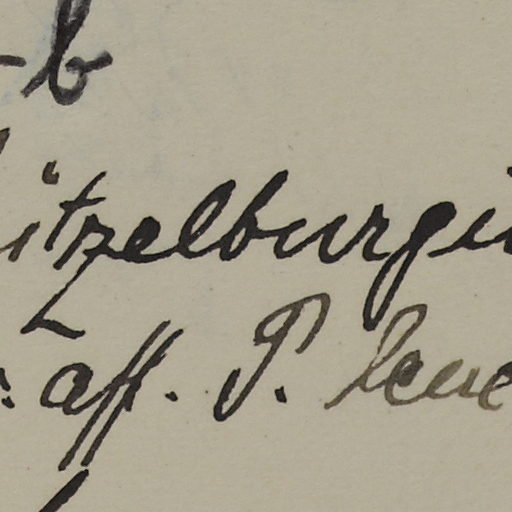 -b
itzelburgi
: aff. P. leuc